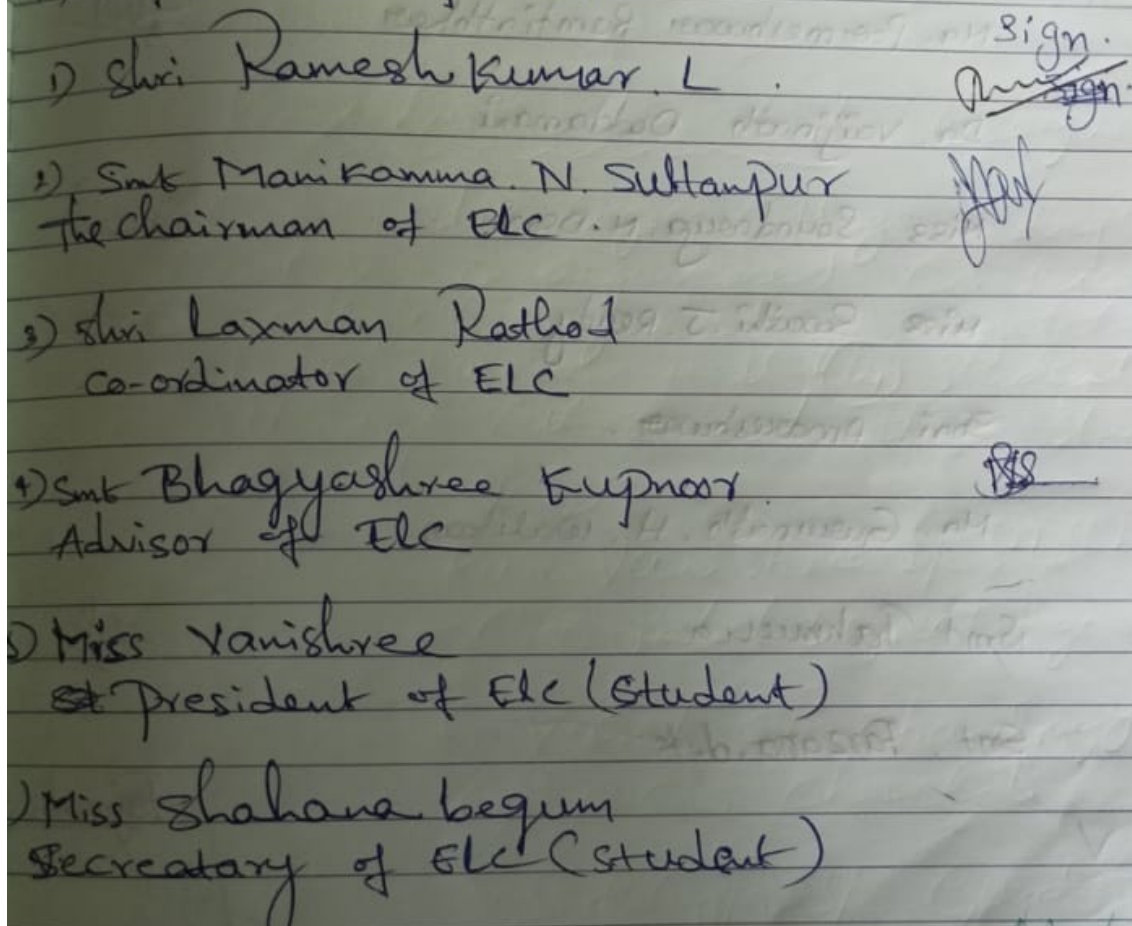 Sign.
1) Shri Ramesh Kumar. L .
Sign.
2) Smt Manikamma. N. Sultanpur
The chairman of ELC.
3) Shri Laxman Rathod
Co-ordinator of ELC
4) Smt Bhagyashree Kupnoor.
Advisor of ELC
) Miss Vanishree
President of ELC (Student)
) Miss Shahana begum
Secreatary of ELC (Student)